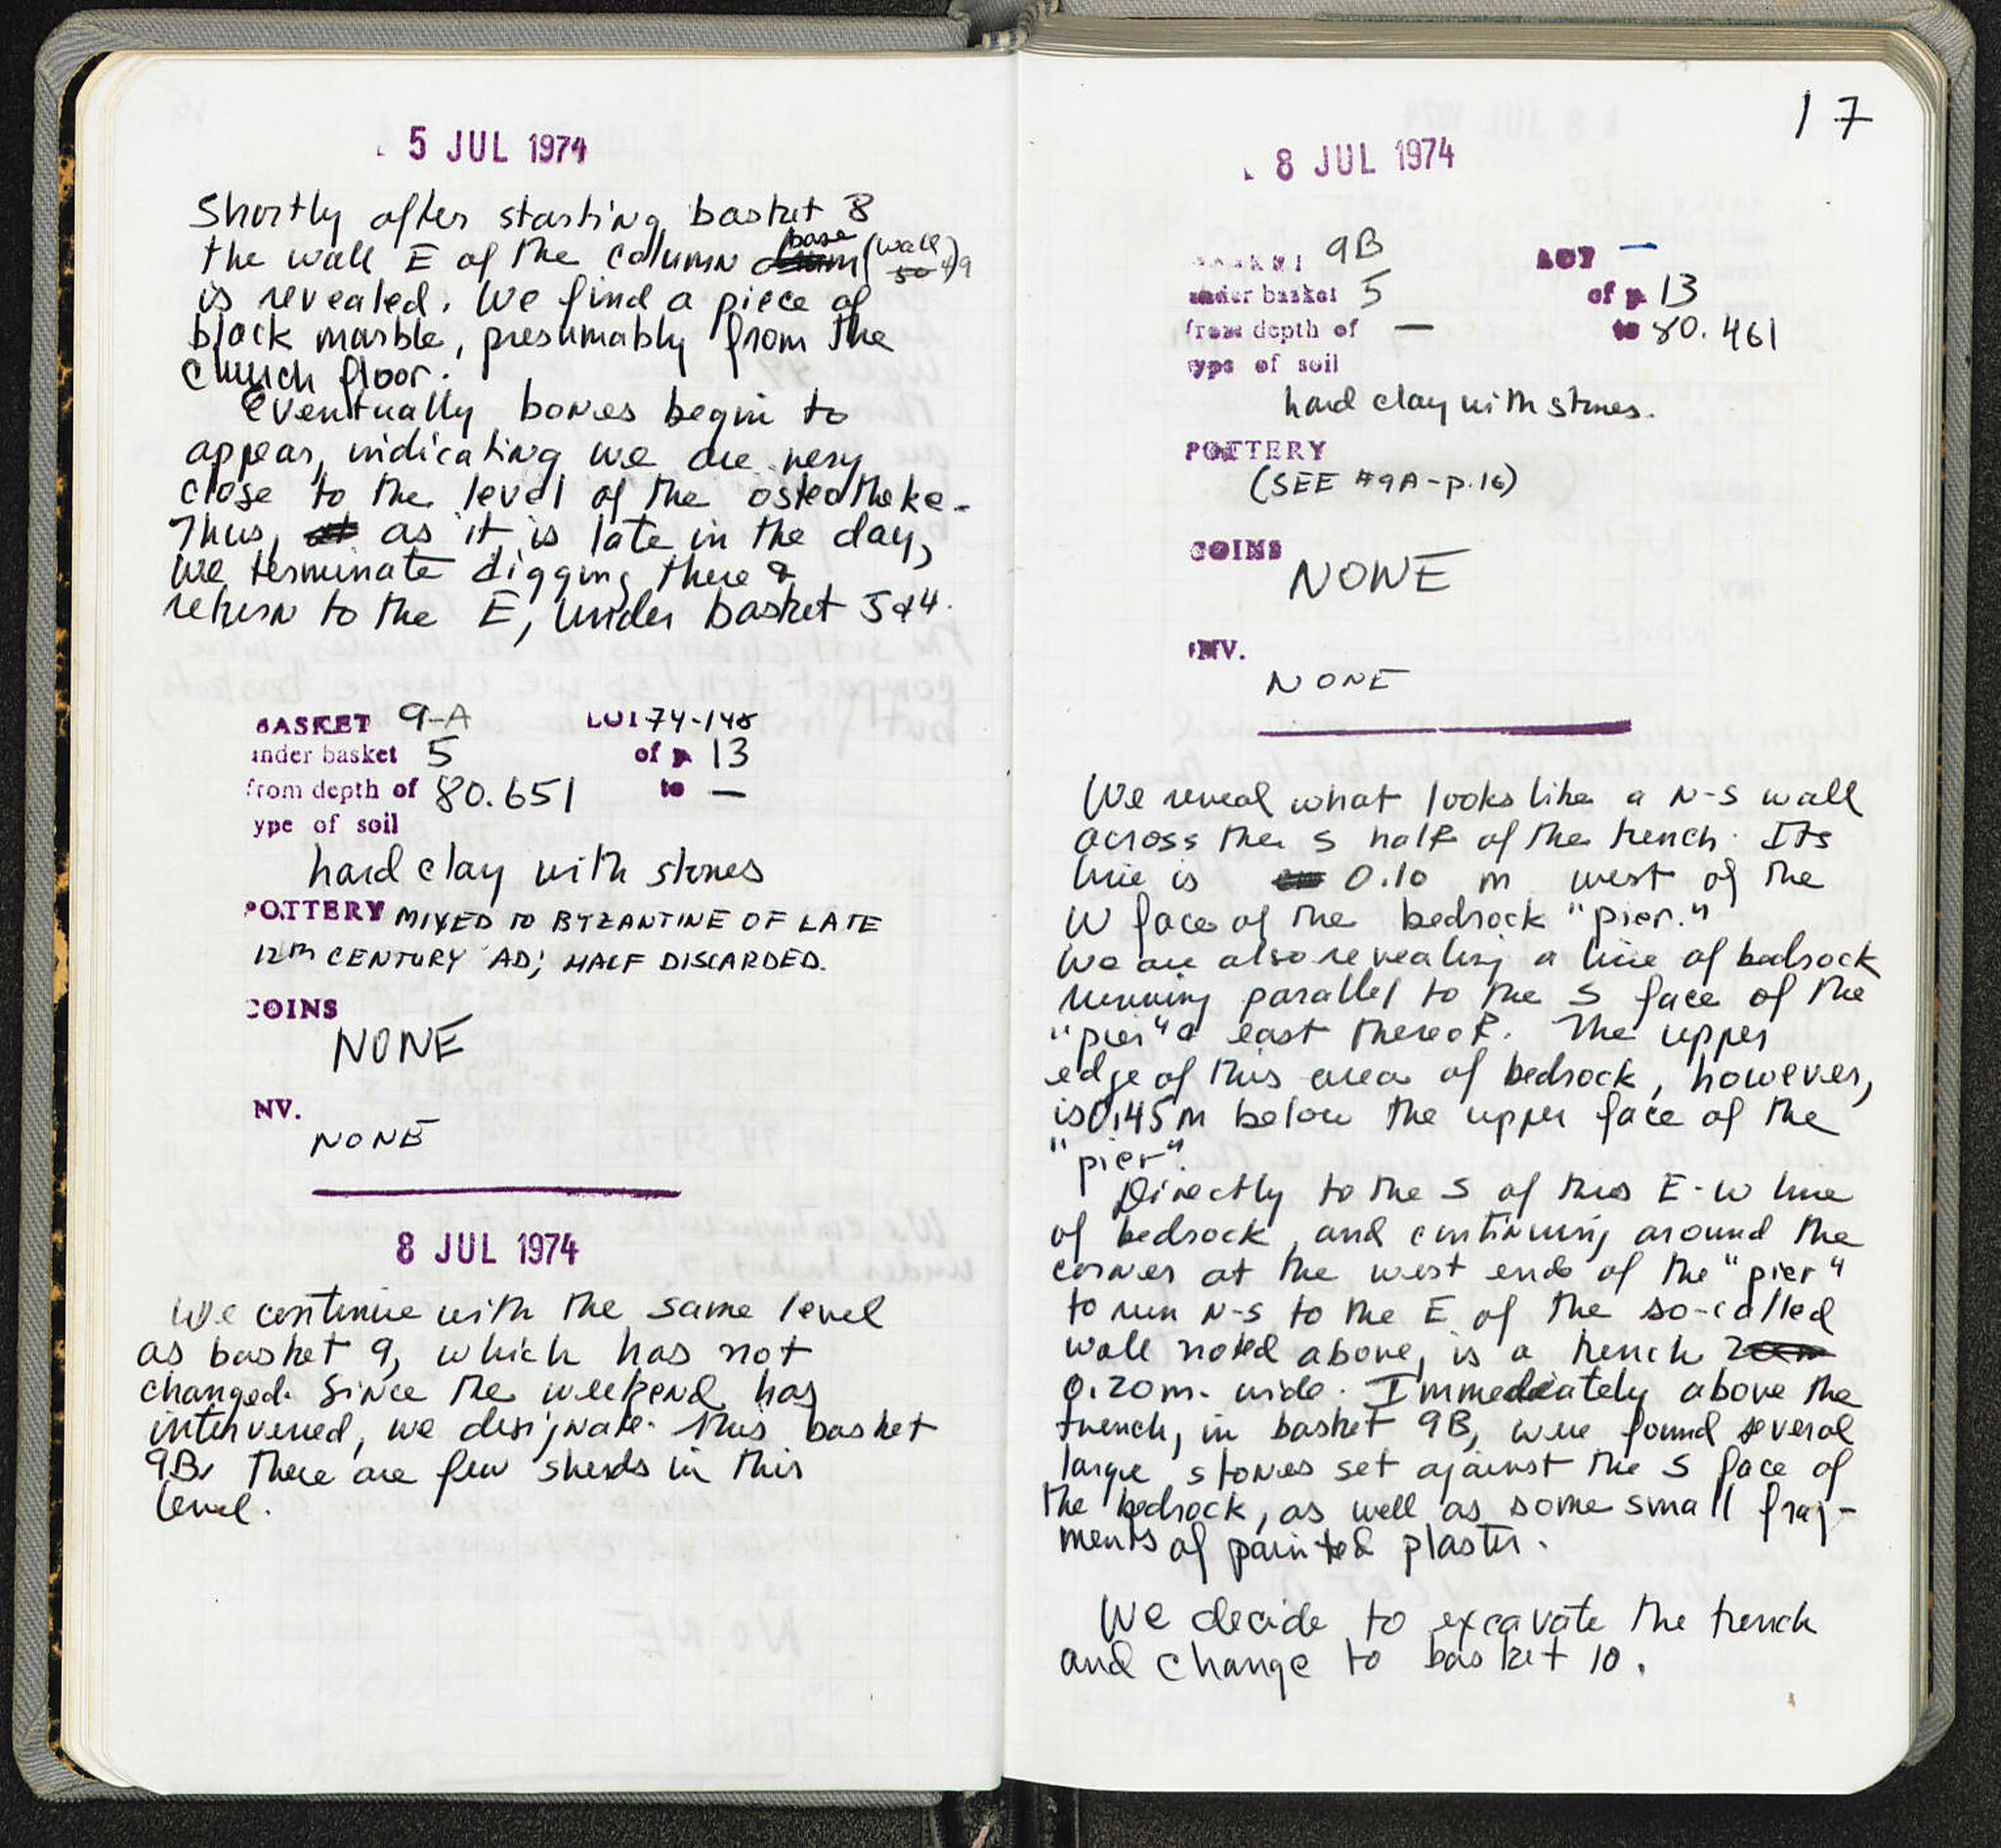 5 JUL 1974
Shortly after starting basket 8
the wall E of the column base (wall 49)
is revealed. We find a piece of
black marble, presumably from the
church floor.
Eventually bones begin to
appear, indicating we are very
close to the level of the osteotheke.
Thus, as it is late in the day,
we terminate digging there &
return to the E, under basket 5&4.
BASKET 9-A LOT 74-148
under basket 5 of p. 13
from depth of 80.651 to —
ype of soil
hard clay with stones
POTTERY MIXED TO BYZANTINE OF LATE
12th CENTURY AD; HALF DISCARDED.
COINS
NONE
NV.
NONE
8 JUL 1974
We continue with the same level
as basket 9, which has not
changed. Since the weekend has
intervened, we designate this basket
9B. There are few sherds in this
level.
17
8 JUL 1974
BASKET 9B LOT —
under basket 5 of p. 13
from depth of — to 80.461
ype of soil
hard clay with stones.
POTTERY
(SEE #9A-p.16)
COINS
NONE
INV.
NONE
We reveal what looks like a N-S wall
across the S half of the trench. Its
line is 0.10 m west of the
W face of the bedrock "pier."
We are also revealing a line of bedrock
running parallel to the S face of the
"pier" & east thereof. The upper
edge of this area of bedrock, however,
is 0.45m below the upper face of the
"pier".
Directly to the S of this E-W line
of bedrock, and continuing around the
corner at the west end of the "pier"
to run N-S to the E of the so-called
wall noted above, is a trench
0.20m. wide. Immediately above the
trench, in basket 9B, were found several
large stones set against the S face of
the bedrock, as well as some small frag-
ments of painted plaster.
We decide to excavate the trench
and change to basket 10.